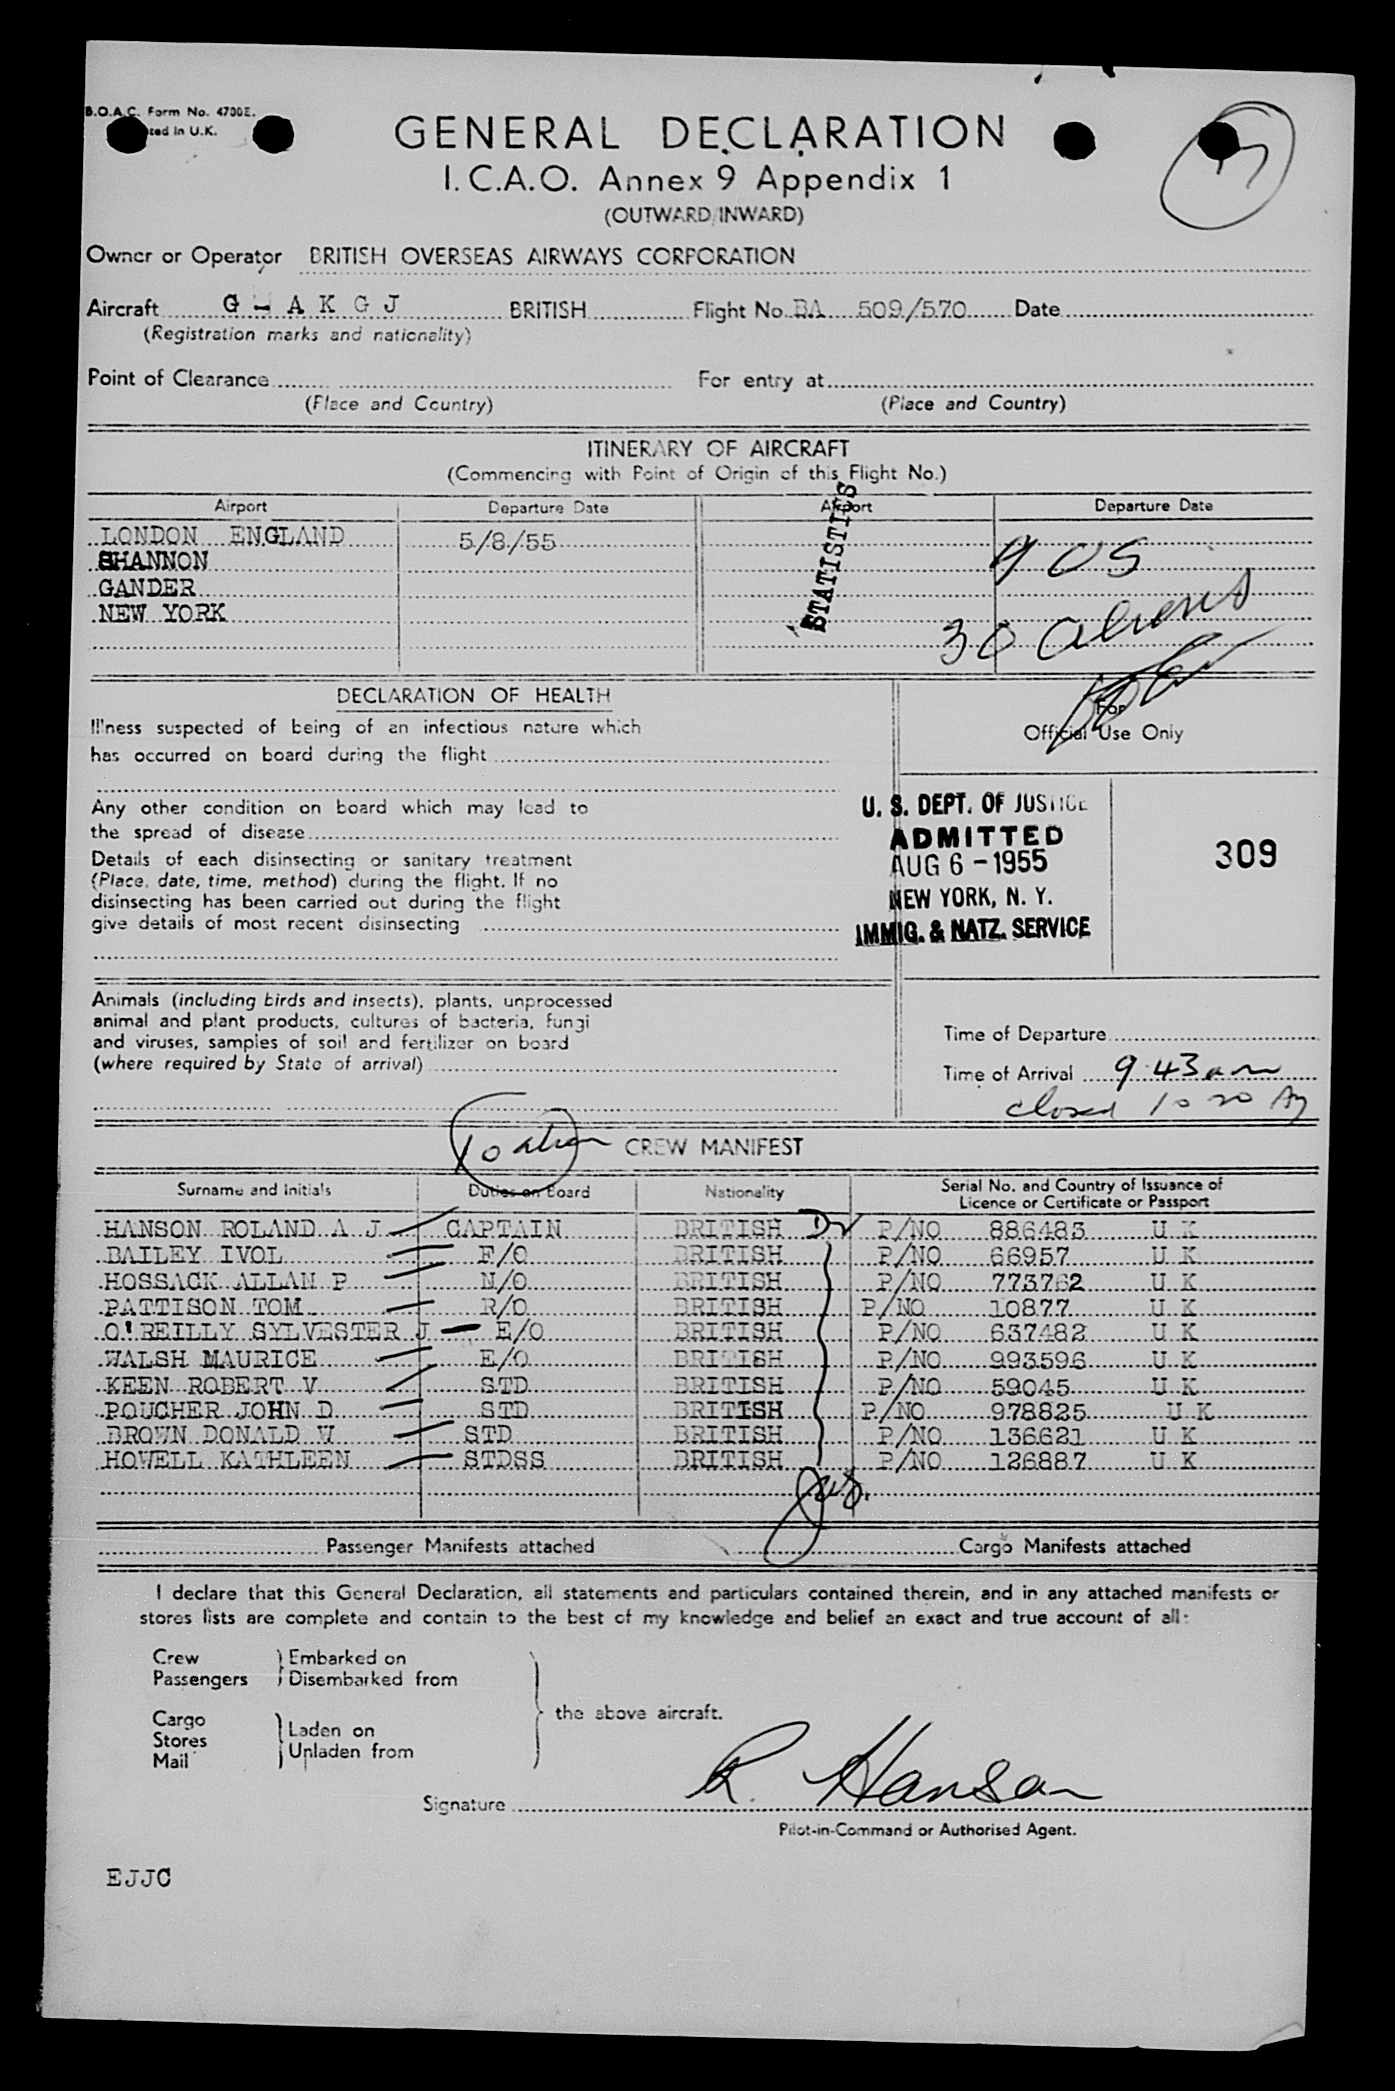 B.O.A.C. Form No. 4700E.
ted in U.K.
GENERAL DECLARATION
I.C.A.O. Annex 9 Appendix 1
(OUTWARD/INWARD)
Owner or Operator BRITISH OVERSEAS AIRWAYS CORPORATION
Aircraft G - A K G J BRITISH Flight No. BA 509/570 Date
(Registration marks and nationality)
Point of Clearance For entry at
(Place and Country) (Place and Country)
ITINERARY OF AIRCRAFT
(Commencing with Point of Origin of this Flight No.)
Airport Departure Date Airport Departure Date
LONDON ENGLAND 5/8/55
SHANNON
GANDER
NEW YORK
STATISTICS
905
30 aliens
DECLARATION OF HEALTH
Illness suspected of being of an infectious nature which
has occurred on board during the flight
For
Official Use Only
Any other condition on board which may lead to
the spread of disease
Details of each disinsecting or sanitary treatment
(Place, date, time, method) during the flight. If no
disinsecting has been carried out during the flight
give details of most recent disinsecting
U. S. DEPT. OF JUSTICE
ADMITTED
AUG 6 - 1955
NEW YORK, N. Y.
IMMIG. & NATZ. SERVICE
309
Animals (including birds and insects), plants, unprocessed
animal and plant products, cultures of bacteria, fungi
and viruses, samples of soil and fertilizer on board
(where required by State of arrival)
Time of Departure
Time of Arrival 9:43 am
closed 10 20
10 alien CREW MANIFEST
Surname and Initials Duties on Board Nationality Serial No. and Country of Issuance of
Licence or Certificate or Passport
HANSON ROLAND A J CAPTAIN BRITISH P/NO 886483 U K
BAILEY IVOL F/O BRITISH P/NO 66957 U K
HOSSACK ALLAN P N/O BRITISH P/NO 773762 U K
PATTISON TOM R/O BRITISH P/NO 10877 U K
O'REILLY SYLVESTER J E/O BRITISH P/NO 637482 U K
WALSH MAURICE E/O BRITISH P/NO 993596 U K
KEEN ROBERT V STD BRITISH P/NO 59045 U K
POUCHER JOHN D STD BRITISH P/NO 978825 U K
BROWN DONALD W STD BRITISH P/NO 136621 U K
HOWELL KATHLEEN STDSS BRITISH P/NO 126887 U K
Passenger Manifests attached Cargo Manifests attached
I declare that this General Declaration, all statements and particulars contained therein, and in any attached manifests or
stores lists are complete and contain to the best of my knowledge and belief an exact and true account of all:
Crew Embarked on
Passengers Disembarked from
the above aircraft.
Cargo
Stores Laden on
Mail Unladen from
Signature R. Hanson
Pilot-in-Command or Authorised Agent.
EJJC